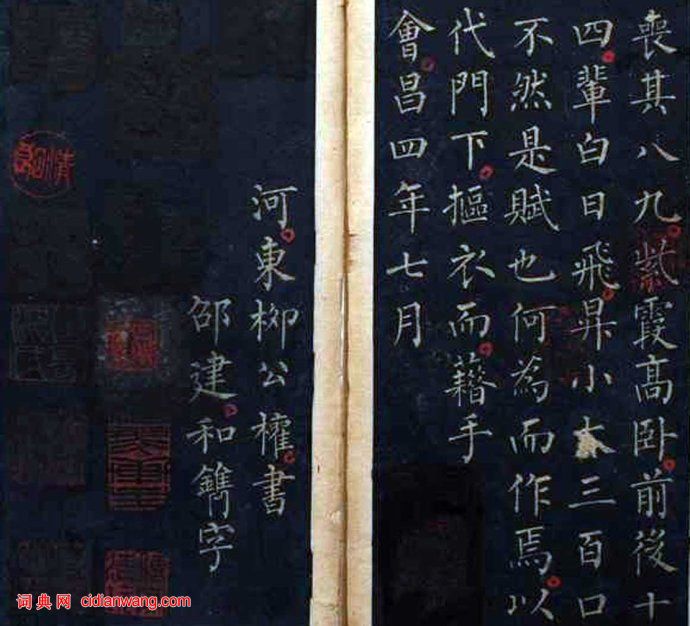 喪其八九紫霞高卧前後十
四輩白日飛昇小大三百口
不然是賦也何爲而作焉以
代門下摳衣而藉手
會昌四年七月
河東柳公權書
邵建和鐫字
词典网 cidianwang.com